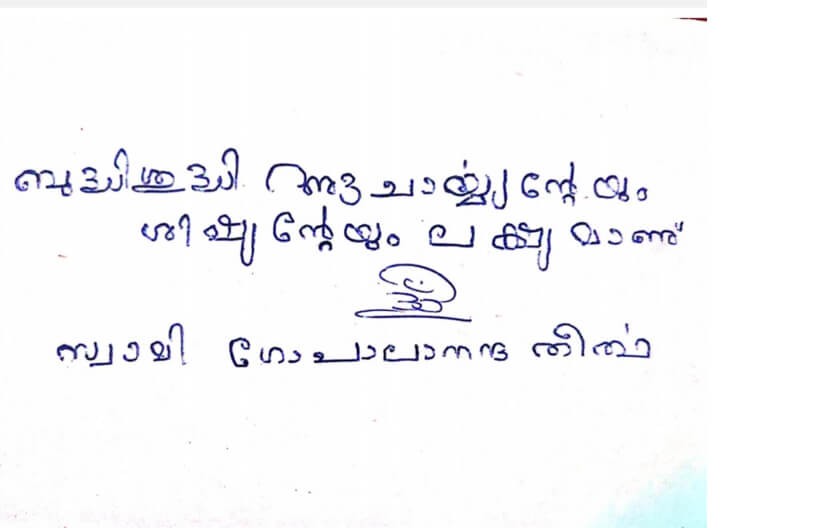 ബുദ്ധിശുദ്ധി ആചാര്യന്റേയും
ശിഷ്യന്റേയും ലക്ഷ്യമാണ്
ഓം
സ്വാമി ഗോപാലാനന്ദ തീർത്ഥ